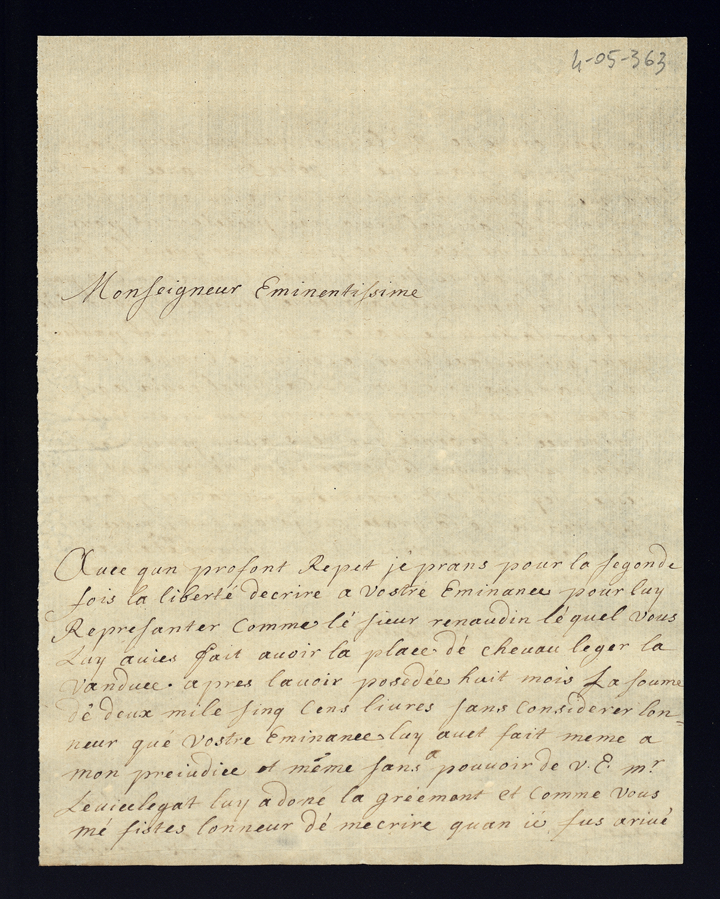 4-05-363
Monseigneur Eminentissime
Avec qun profont Repet je prans pour la segonde
fois la liberté decrire a vostre Eminance pour luy
Represanter comme lé sieur renaudin léquel vous
Luy avies fait avoir la place dé chevau leger la
vandue apres lavoir posedée huit mois La soume
dé deux mile sinq cens livres sans considerer lon=
neur qué vostre Eminance luy avet fait meme a
mon preiudice et méme sans a pouvoir de v. E. mr
Levicelegat luy a doné la gréemont et comme vous
mé fistes lonneur dé mecrire quan ié fus arivé